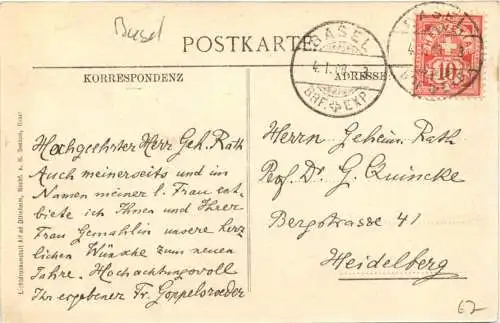 Basel
POSTKARTE
KORRESPONDENZ
ADRESSE
BASEL
4.I.08
BRF. EXP.
HELVETIA
10
Hochgeehrter Herr Geh. Rath
Auch meinerseits und im
Namen meiner l. Frau ent-
biete ich Ihnen und Ihrer
Frau Gemahlin unsere herz-
lichen Wünsche zum neuen
Jahre. Hochachtungsvoll
Ihr ergebener Fr. Goppelsroeder
Herrn Geheim. Rath
Prof. Dr. G. Quincke
Bergstrasse 41
Heidelberg
62